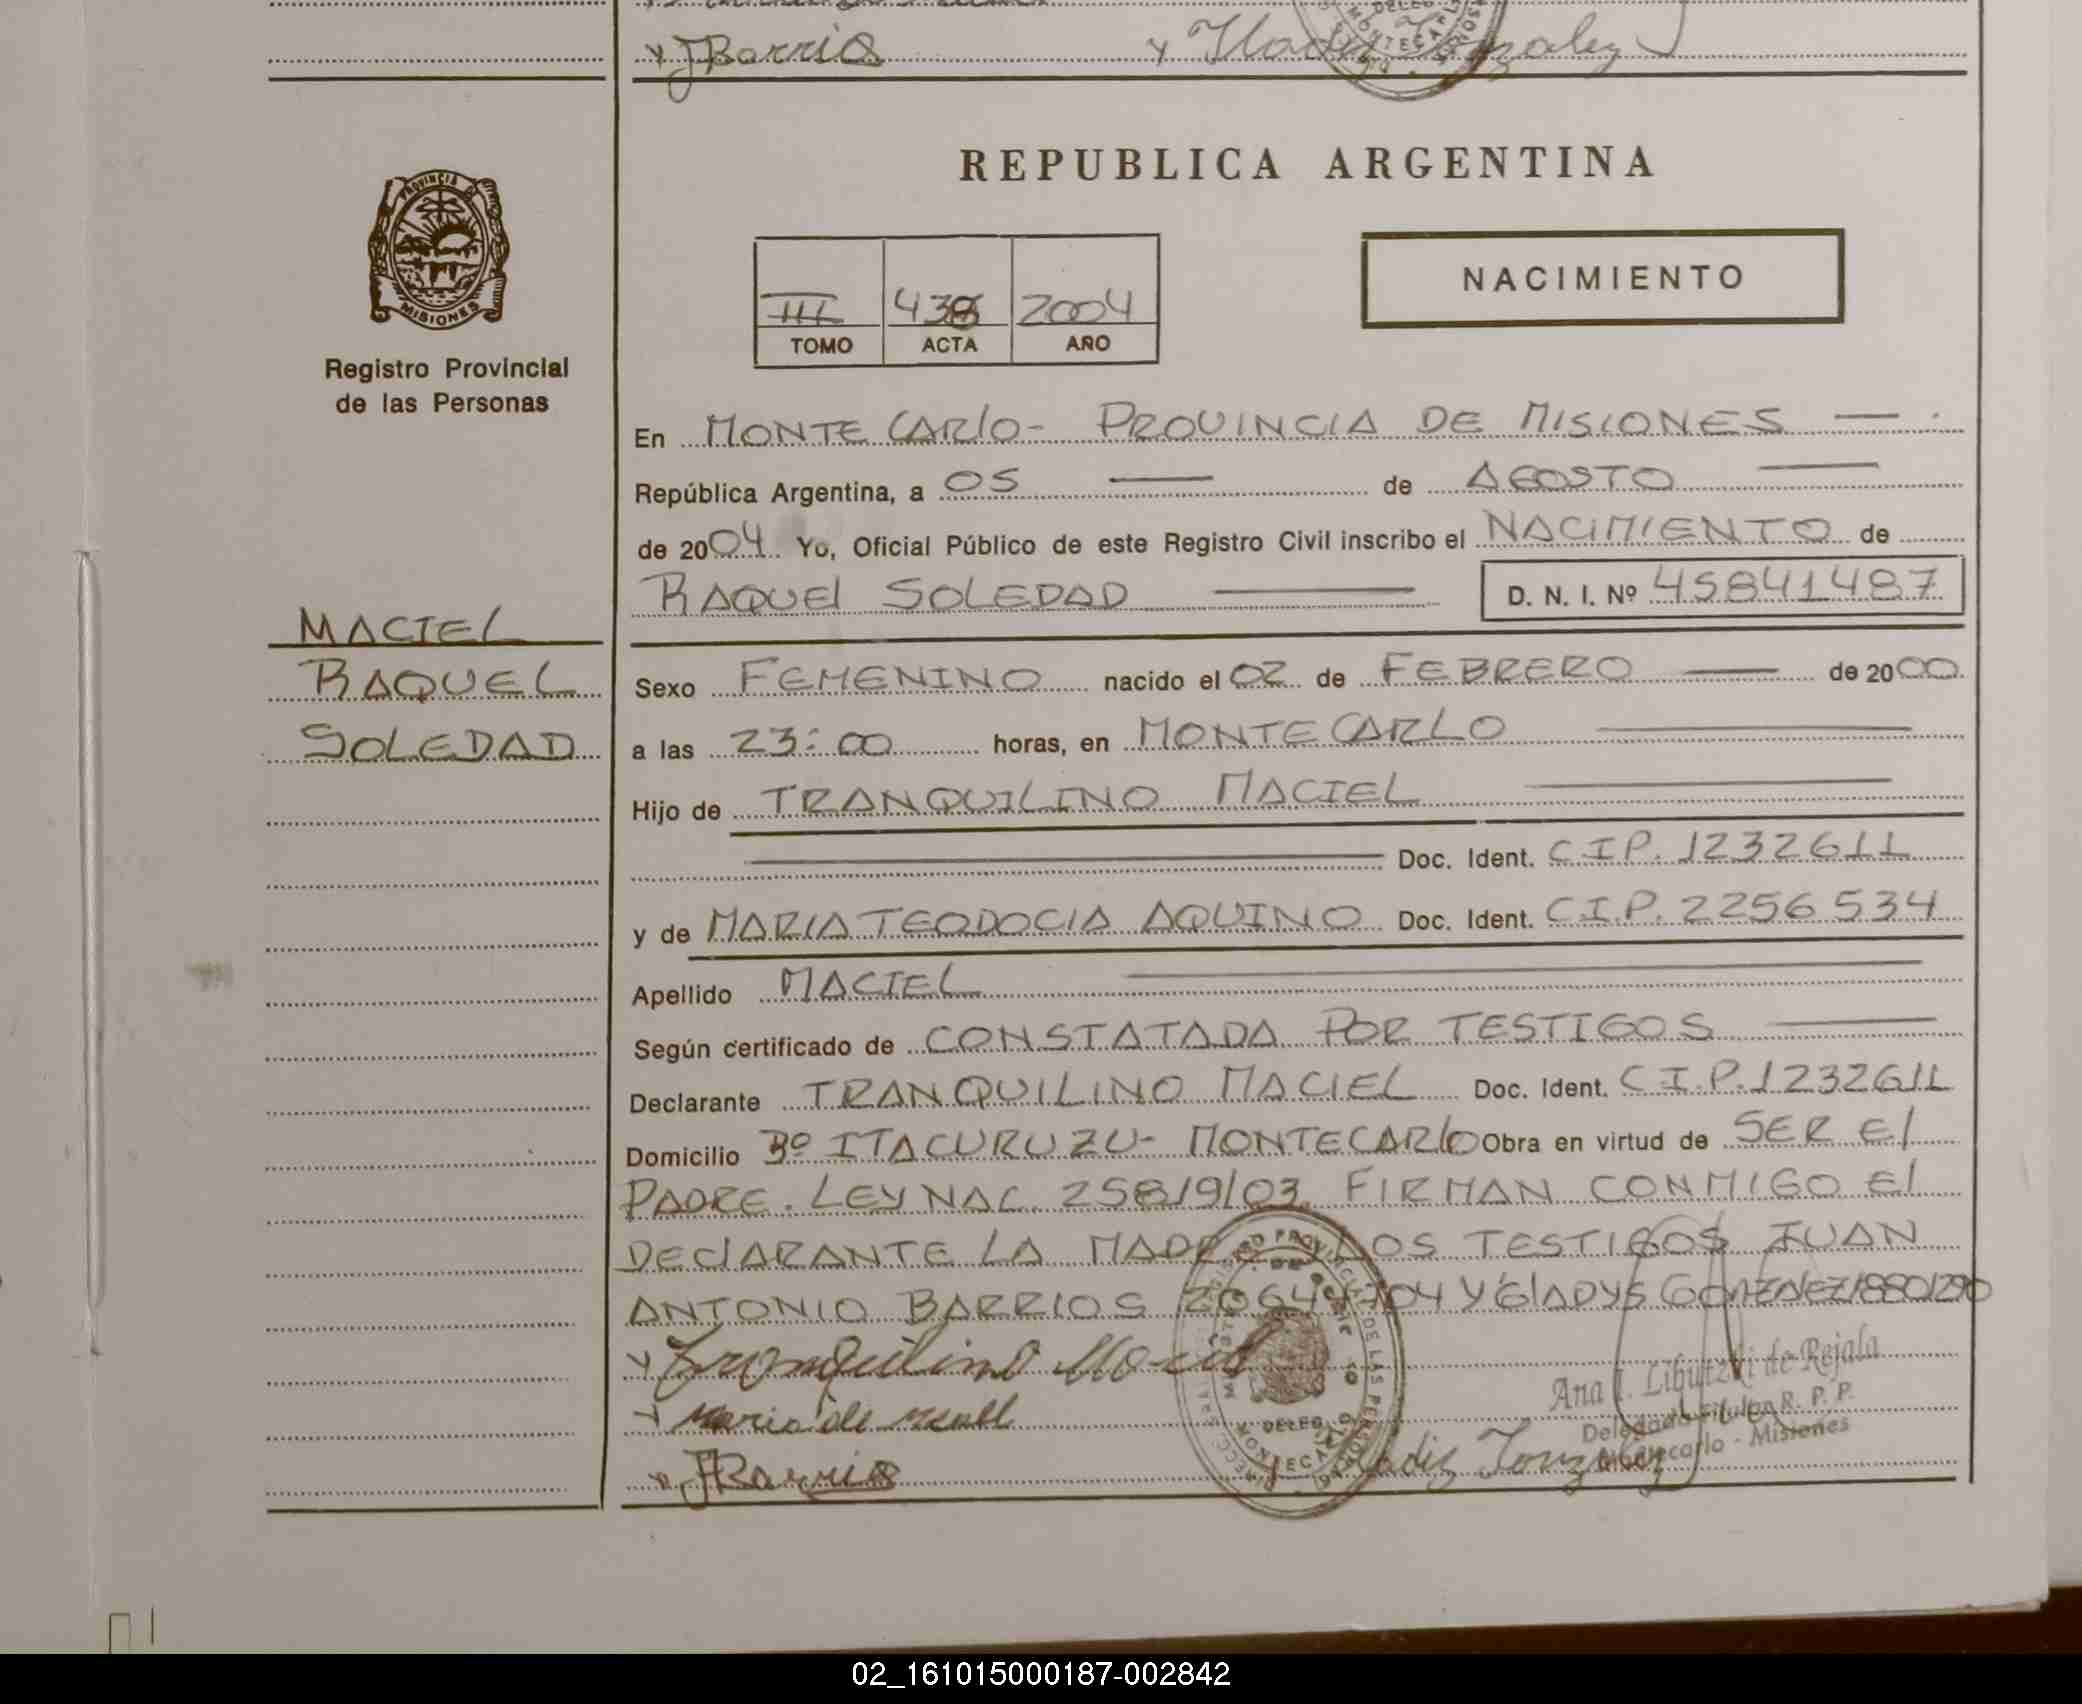 Y JBarrios Y Gladis Gonzalez
DELEG
MONTECARLO
REPUBLICA ARGENTINA
PROVINCIA DE
MISIONES
Registro Provincial
de las Personas
NACIMIENTO
III 438 2004
TOMO ACTA AÑO
En MONTE CARlO - PROVINCIA DE MISIONES
República Argentina, a 05 de AGOSTO
de 2004 Yo, Oficial Público de este Registro Civil inscribo el NACIMIENTO de
RAQUEl SOLEDAD D. N. I. Nº 45841487
MACIEL
RAQUEL
SOLEDAD
Sexo FEMENINO nacido el 02 de FEBRERO de 2000
a las 23:00 horas, en MONTECARLO
Hijo de TRANQUILINO MACIEL
Doc. Ident. C.I.P. 1232611
y de MARIA TEODOCIA AQUINO Doc. Ident. C.I.P. 2256534
Apellido MACIEL
Según certificado de CONSTATADA POR TESTIGOS
Declarante TRANQUILINO MACIEL Doc. Ident. C.I.P. 1232611
Domicilio Bº ITACURUZU - MONTECARlO Obra en virtud de SER El
PADRE. LEY NAC. 25819/03. FIRMAN CONMIGO El
DEClARANTE LA MADRE LOS TESTIGOS JUAN
ANTONIO BARRIOS Y GlADYS GONZALEZ 18801290
Y Tranquilino Maciel
Y
Y JBarrios Gladis Gonzalez
Ana I. Libutzki de Rejala
Delegada Titular R. P. P.
Montecarlo - Misiones
02_161015000187-002842